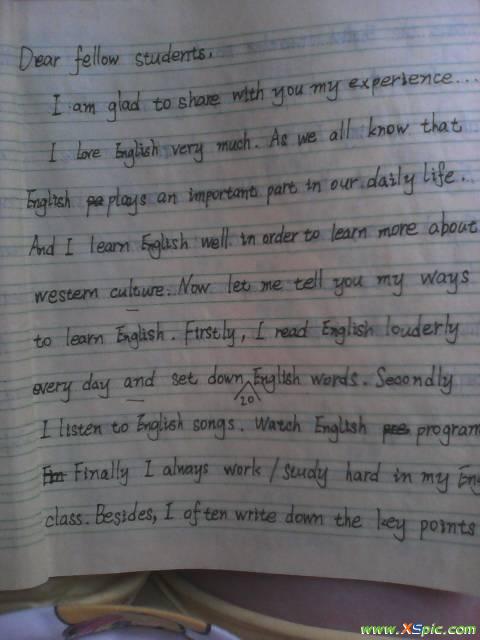 Dear fellow students,
I am glad to share with you my experience...
I love English very much. As we all know that
English plays an important part in our daily life.
And I learn English well in order to learn more about
western culture. Now let me tell you my ways
to learn English. Firstly, I read English louderly
every day and set down English words. Secondly
20
I listen to English songs. Watch English program
Finally I always work / study hard in my En
class. Besides, I often write down the key points
www.XSpic.com